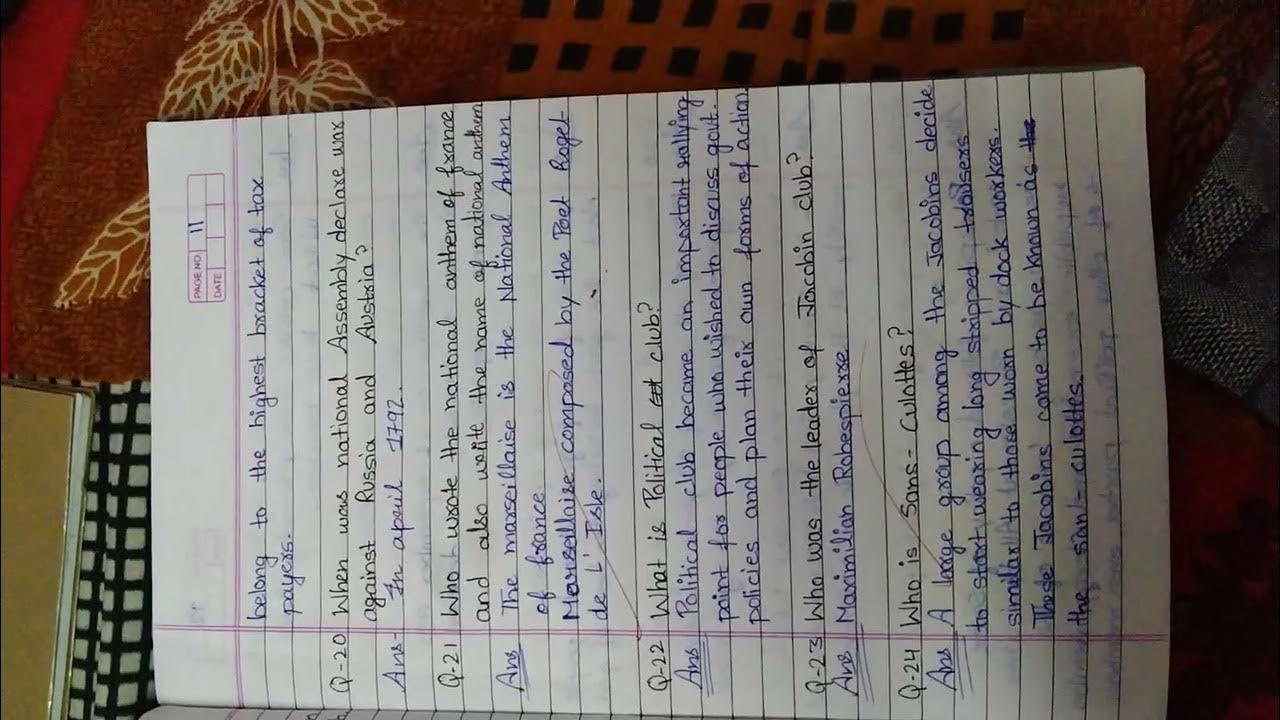 PAGE NO. 11
DATE
belong to the highest bracket of tax
payers.
Q-20 When was national Assembly declare war
against Russia and Austria?
Ans- In april 1792.
Q-21 Who wrote the national anthem of france
and also write the name of national anthem
Ans The marseillaise is the National Anthem
of france
Marseillaise composed by the Poet Roget
de L' Isle.
Q-22 What is Political club?
Ans Political club became an important rallying
point for people who wished to discuss govt.
policies and plan their own forms of action.
Q-23 Who was the leader of Jacobin club?
Ans Maximilian Robespierre
Q-24 Who is Sans-Culottes?
Ans A large group among the Jacobins decide
to start wearing long stripped trousers
similar to those worn by dock workers.
These Jacobins came to be known as
the san-culottes.